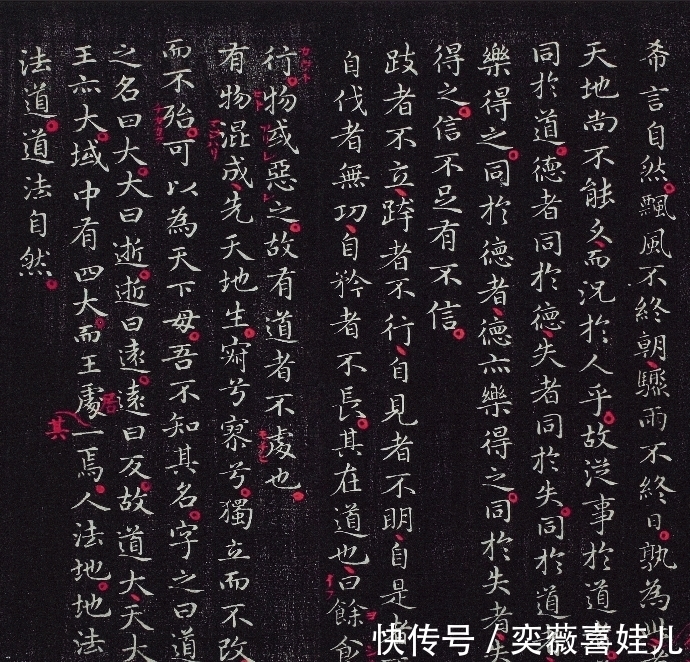 希言自然飄風不終朝驟雨不終日孰為
天地尚不能久而況於人乎故從事於道
同於道德者同於德失者同於失同於道
樂得之同於德者德亦樂得之同於失者失
得之信不足有不信
跂者不立跨者不行自見者不明自是
自伐者無功自矜者不長其在道也曰餘食
行物或惡之故有道者不處也
有物混成先天地生寂兮寥兮獨立而不改
而不殆可以為天下母吾不知其名字之曰道
之名曰大大曰逝逝曰遠遠曰反故道大天大
王亦大域中有四大而王處一焉人法地地法
居
其
法道道法自然
快传号/奕薇喜娃儿